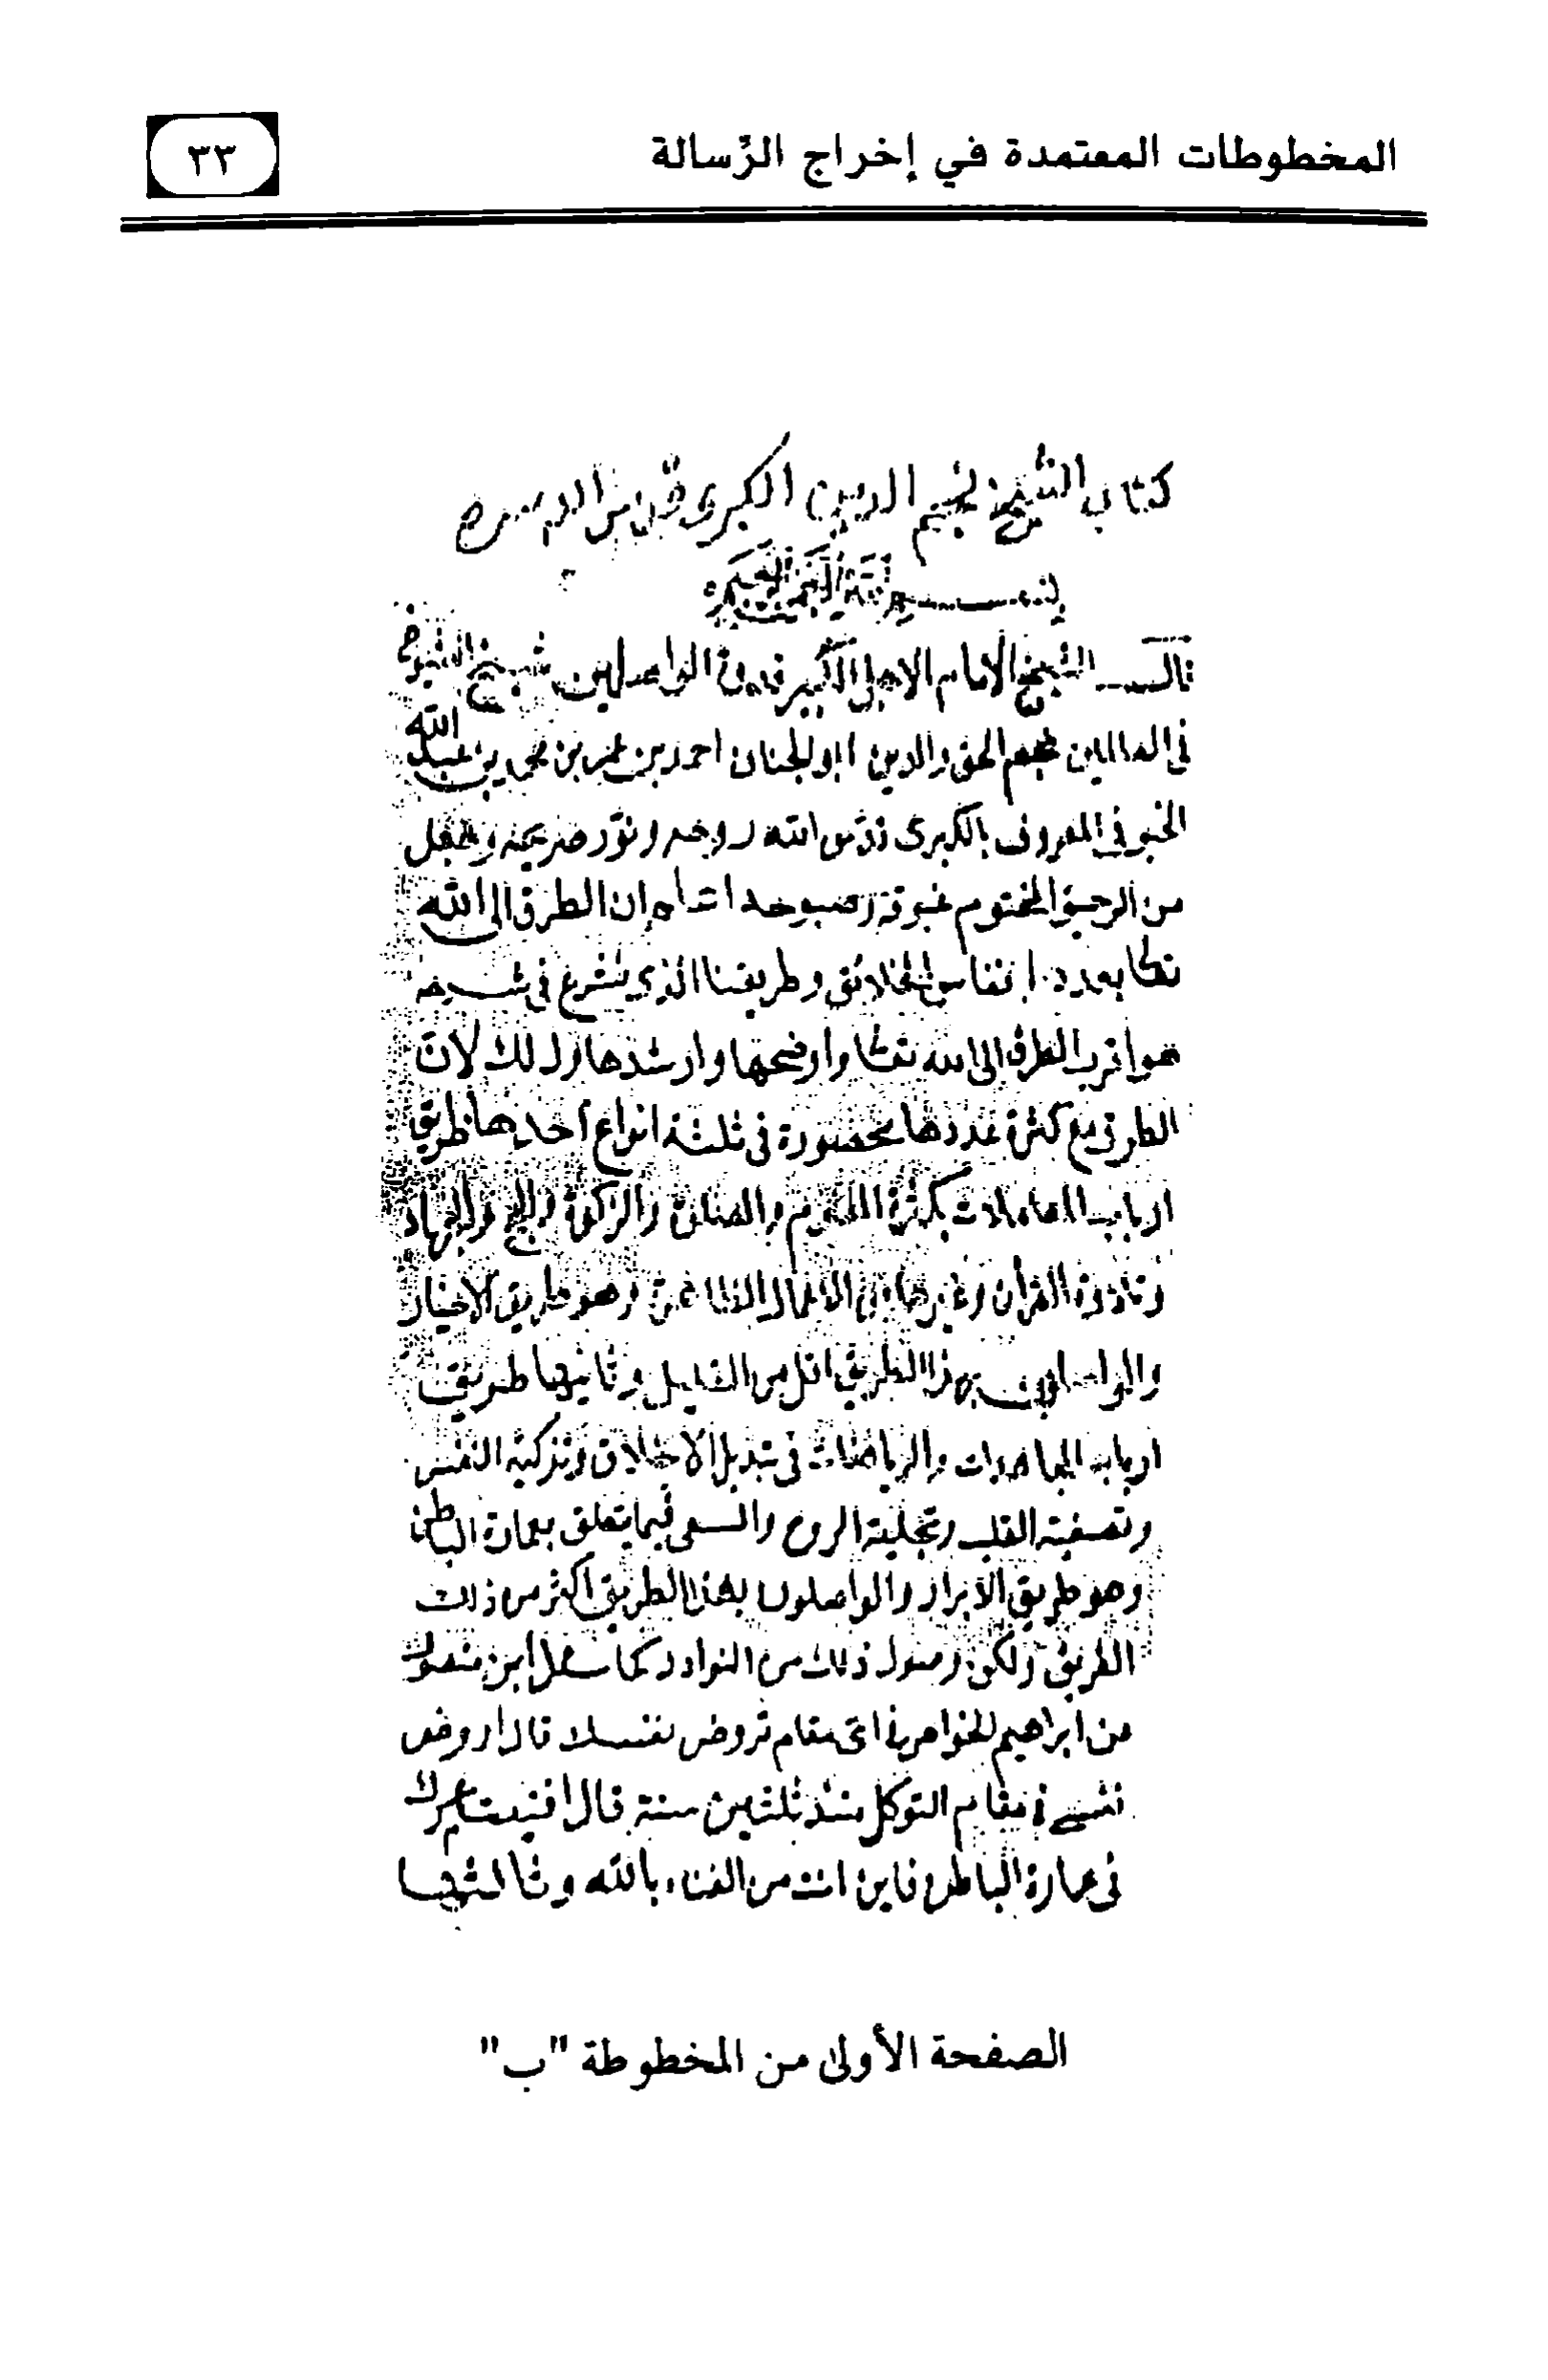 المخطوطات المعتمدة في إخراج الرِّسالة
٣٣
كتاب الشيخ نجم الدين الكبرى قدس الله سره
بسم الله الرحمن الرحيم
قال الشيخ الامام الاجل الكبير قدوة الواصلين شيخ الشيوخ
فى العالمين نجم الحق والدين ابو الجناب احمد بن عمر بن محمد بن عبد الله
الخيوفى المعروف بالكبرى قدّس الله روحه ونوّر ضريحه وجعل
من الرحيق المختوم غبوقه وصبوحه اعلم ان الطرق الى الله
تعالى بعدد انفاس الخلائق وطريقنا الذى نشرع فى شرحه
هو اقرب الطرق الى الله تعالى واوضحها وارشدها وذلك لانّ
الطرق مع كثرة عددها محصورة فى ثلثة انواع احدها طريق
ارباب المعاملات بكثرة الصوم والصلوة والزكوة والحج والجهاد
وتلاوة القرآن وغيرها من الاعمال الظاهرة وهو طريق الاخيار
والواصلون بهذا الطريق اقل من القليل وثانيها طريق
ارباب المجاهدات والرياضات فى تبديل الاخلاق وتزكية النفس
وتصفية القلب وتجلية الروح والسعى فيما يتعلق بعمارة الباطن
وهو طريق الابرار والواصلون بهذا الطريق اكثر من ذلك
الطريق ولكن وصول ذلك من النوادر كما سئل ابن منصور
من ابراهيم الخواص فى اى مقام تروض نفسك قال اروض
نفسى فى مقام التوكل منذ ثلثين سنة قال افنيت عمرك
فى عمارة الباطن فاين انت من الفناء بالله وثالثها
الصفحة الأولى من المخطوطة "ب"